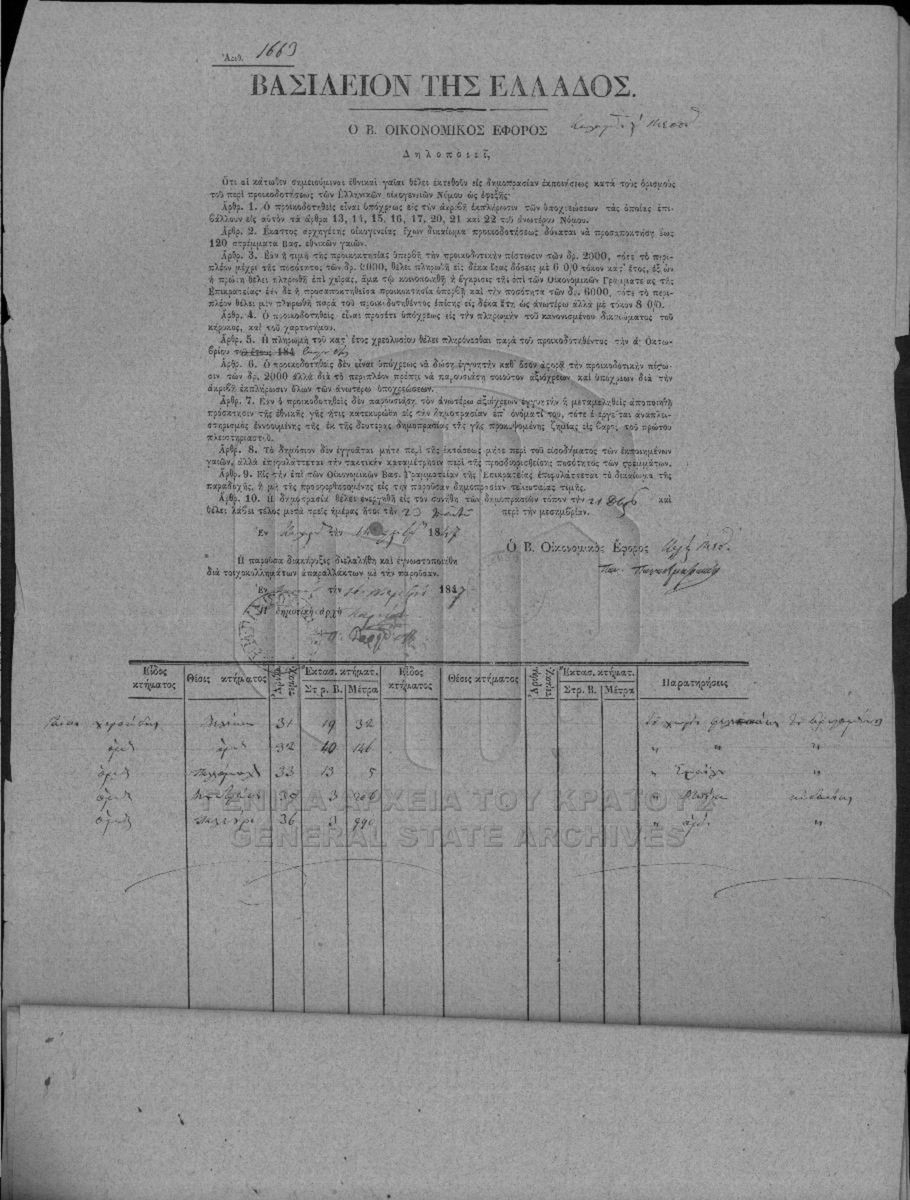 Ἀριθ. 1663
ΒΑΣΙΛΕΙΟΝ ΤΗΣ ΕΛΛΑΔΟΣ.
Ο Β. ΟΙΚΟΝΟΜΙΚΟΣ ΕΦΟΡΟΣ
Δηλοποιεῖ,
Ότι αἱ κάτωθεν σημειούμεναι ἐθνικαὶ γαῖαι θέλει ἐκτεθοῦν εἰς δημοπρασίαν ἐκποιήσεως κατὰ τοὺς ὁρισμοὺς
τοῦ περὶ προικοδοτήσεως τῶν Ἑλληνικῶν οἰκογενειῶν Νόμου ὡς ἐφεξῆς·
Ἀρθρ. 1. Ὁ προικοδοτηθεὶς εἶναι ὑπόχρεως εἰς τὴν ἀκριβῆ ἐκπλήρωσιν τῶν ὑποχρεώσεων τὰς ὁποίας ἐπι-
βάλλουν εἰς αὐτὸν τὰ ἄρθρα 13, 14, 15, 16, 17, 20, 21 καὶ 22 τοῦ ἀνωτέρω Νόμου.
Ἀρθρ. 2. Εκαστος ἀρχηγέτης οἰκογενείας ἔχων δικαίωμα προικοδοτήσεως δύναται νὰ προσαποκτήσῃ ἕως
120 στρέμματα Βασ. ἐθνικῶν γαιῶν.
Ἀρθρ. 3. Εὰν ἡ τιμὴ τῆς προικοκτησίας ὑπερβῇ τὴν προικοδοτικὴν πίστωσιν τῶν δρ. 2000, τότε τὸ περι-
πλέον μέχρι τῆς ποσότητος τῶν δρ. 6000, θέλει πληρωθῆ εἰς δέκα ἴσας δόσεις μὲ 6 0/0 τόκον κατ' ἔτος, ἐξ ὧν
ἡ πρώτη θέλει πληρωθῆ ἐπὶ χεῖρας, ἅμα τῷ κοινοποιηθῇ ἡ ἔγκρισις τῆς ἐπὶ τῶν Οἰκονομικῶν Γραμματείας τῆς
Ἐπικρατείας· ἐὰν δὲ ἡ προσαποκτηθεῖσα προικοκτησία ὑπερβῇ καὶ τὴν ποσότητα τῶν δρ. 6000, τότε τὸ περι-
πλέον θέλει μὲν πληρωθῆ παρὰ τοῦ προικοδοτηθέντος ἐπίσης εἰς δέκα ἔτη ὡς ἀνωτέρω ἀλλὰ μὲ τόκον 8 0/0.
Ἀρθρ. 4. Ὁ προικοδοτηθεὶς εἶναι προσέτι ὑπόχρεως εἰς τὴν πληρωμὴν τοῦ κανονισμένου δικαιώματος τοῦ
κήρυκος, καὶ τοῦ χαρτοσήμου.
Ἀρθρ. 5. Ἡ πληρωμὴ τοῦ κατ' ἔτος χρεολυσίου θέλει πληρόνεσθαι παρὰ τοῦ προικοδοτηθέντος τὴν ά. Οκτω-
βρίου τοῦ ἔτους 184
Ἀρθρ. 6. Ὁ προικοδοτηθεὶς δὲν εἶναι ὑπόχρεως νὰ δώσῃ ἐγγυητὴν καθ' ὅσον ἀφορᾷ τὴν προικοδοτικὴν πίστω-
σιν τῶν δρ. 2000 ἀλλὰ διὰ τὸ περιπλέον πρέπει νὰ παρουσιάσῃ τοιοῦτον ἀξιόχρεων καὶ ὑπόχρεων διὰ τὴν
ἀκριβῆ ἐκπλήρωσιν ὅλων τῶν ἀνωτέρω ὑποχρεώσεων.
Ἀρθρ. 7. Εὰν ὁ προικοδοτηθεὶς δὲν παρουσιάσῃ τὸν ἀνωτέρω ἀξιόχρεων ἐγγυητὴν ἢ μεταμεληθεὶς ἀποποιηθῇ
πρόσκτησιν τῆς ἐθνικῆς γῆς ἥτις κατεκυρώθη εἰς τὴν δημοπρασίαν ἐπ' ὀνόματί του, τότε ἐνεργεῖται ἀναπλει-
στηριασμὸς ἐννοουμένης τῆς ἐκ τῆς δευτέρας δημοπρασίας τῆς γῆς προκυψομένης ζημίας εἰς βάρος τοῦ πρώτου
πλειστηριαστοῦ.
Ἀρθρ. 8. Τὸ δημόσιον δὲν ἐγγυᾶται μήτε περὶ τῆς ἐκτάσεως μήτε περὶ τοῦ εἰσοδήματος τῶν ἐκποιημένων
γαιῶν, ἀλλὰ ἐπιφυλάττεται τὴν τακτικὴν καταμέτρησιν περὶ τῆς προσδιορισθείσης ποσότητος τῶν στρεμμάτων.
Ἀρθρ. 9. Εἰς τὴν ἐπὶ τῶν Οἰκονομικῶν Βασ. Γραμματείαν τῆς Ἐπικρατείας ἐπιφυλάττεται τὸ δικαίωμα τῆς
παραδοχῆς, ἢ μὴ τῆς προσφερθησομένης εἰς τὴν παροῦσαν δημοπρασίαν τελευταίας τιμῆς.
Ἀρθρ. 10. Ἡ δημοπρασία θέλει ἐνεργηθῆ εἰς τὸν συνήθη τῶν δημοπρασιῶν τόπον τὴν 21 καὶ
θέλει λάβει τέλος μετὰ τρεῖς ἡμέρας ἤτοι τὴν 23 περὶ τὴν μεσημβρίαν.
Ἐν τὴν 1847
Ὁ Β. Οἰκονομικὸς Ἔφορος
Ἡ παροῦσα διακήρυξις διελαλήθη καὶ ἐγνωστοποιήθη
διὰ τοιχοκολλημάτων ἀπαραλλάκτων μὲ τὴν παροῦσαν.
Ἐν τὴν 1847
Ἡ δημοτικὴ ἀρχὴ
Εἶδος κτήματος Θέσις κτήματος Ἀριθμ. τεμαχ. Ἔκτασ. κτήματ. Στρ. Β. Μέτρα Εἶδος κτήματος Θέσις κτήματος Ἀριθμ. τεμαχ. Ἔκτασ. κτήματ. Στρ. Β. Μέτρα Παρατηρήσεις
31 19 32
ὁμοῦ ὁμοῦ 32 40 146 " " "
ὁμοῦ 33 13 5 " "
ὁμοῦ 35 3 206
ὁμοῦ 36 3 990 " ὁμοῦ "
ΓΕΝΙΚΑ ΑΡΧΕΙΑ ΤΟΥ ΚΡΑΤΟΥΣ
GENERAL STATE ARCHIVES